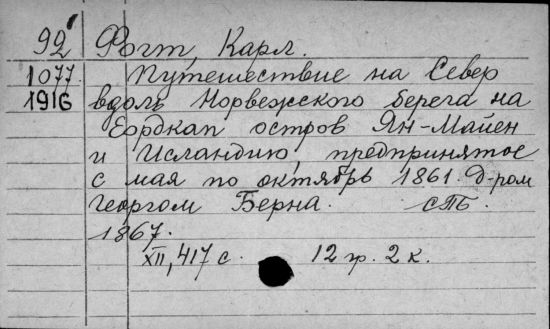 92 Фогт, Карл.
1077 Путешествие на Север
1916 вдоль Норвежского берега на
Еордкап остров Ян-Майен
и Исландию, предпринятое
с мая по октябрь 1861 Д-ром
Георгом Берна. СПб.
1867.
XII, 417 с. 12 гр. 2 к.